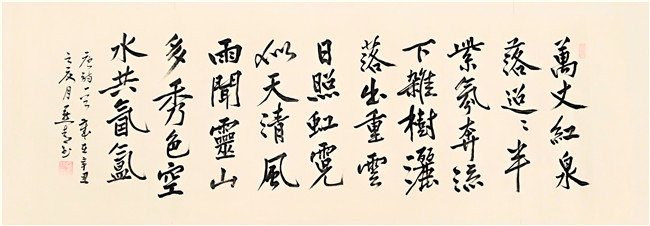 萬丈紅泉
落迢〻半
紫氛奔流
下雜樹灑
落出重雲
日照虹霓
似天清風
雨聞靈山
多秀色空
水共氤氳
唐詩一首 歲在辛丑
壬辰月